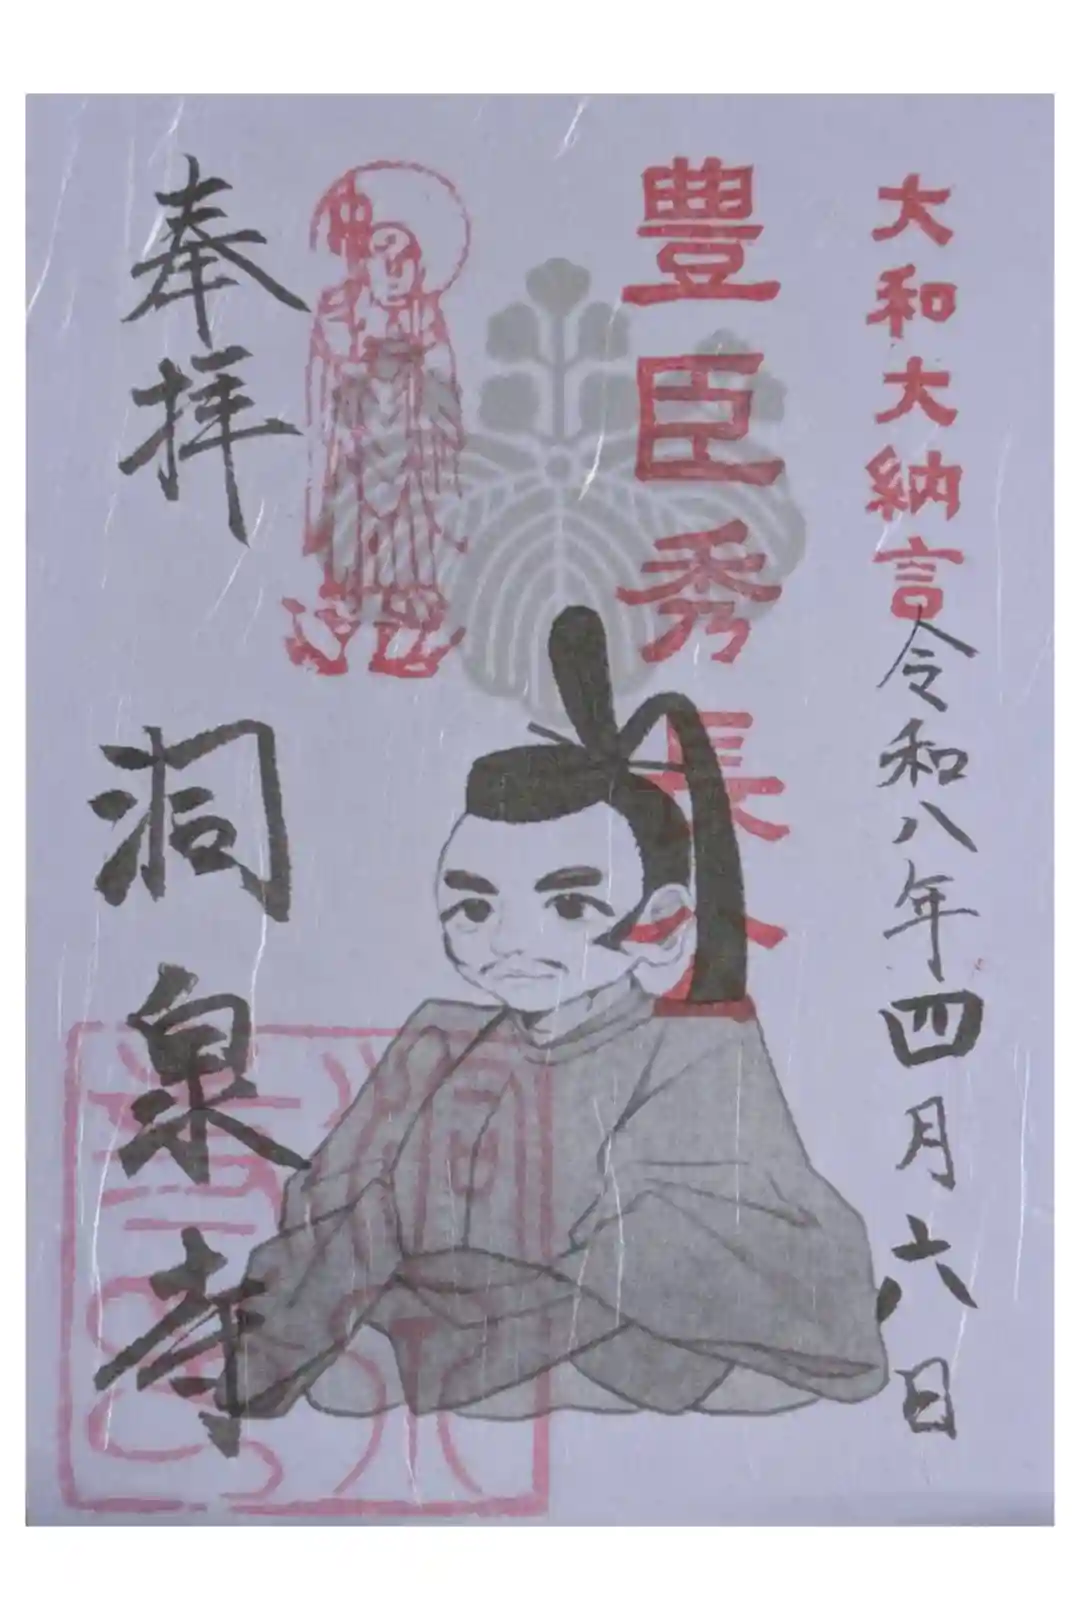 大和大納言
令和八年四月六日
豊臣秀長公
奉拝
洞泉寺